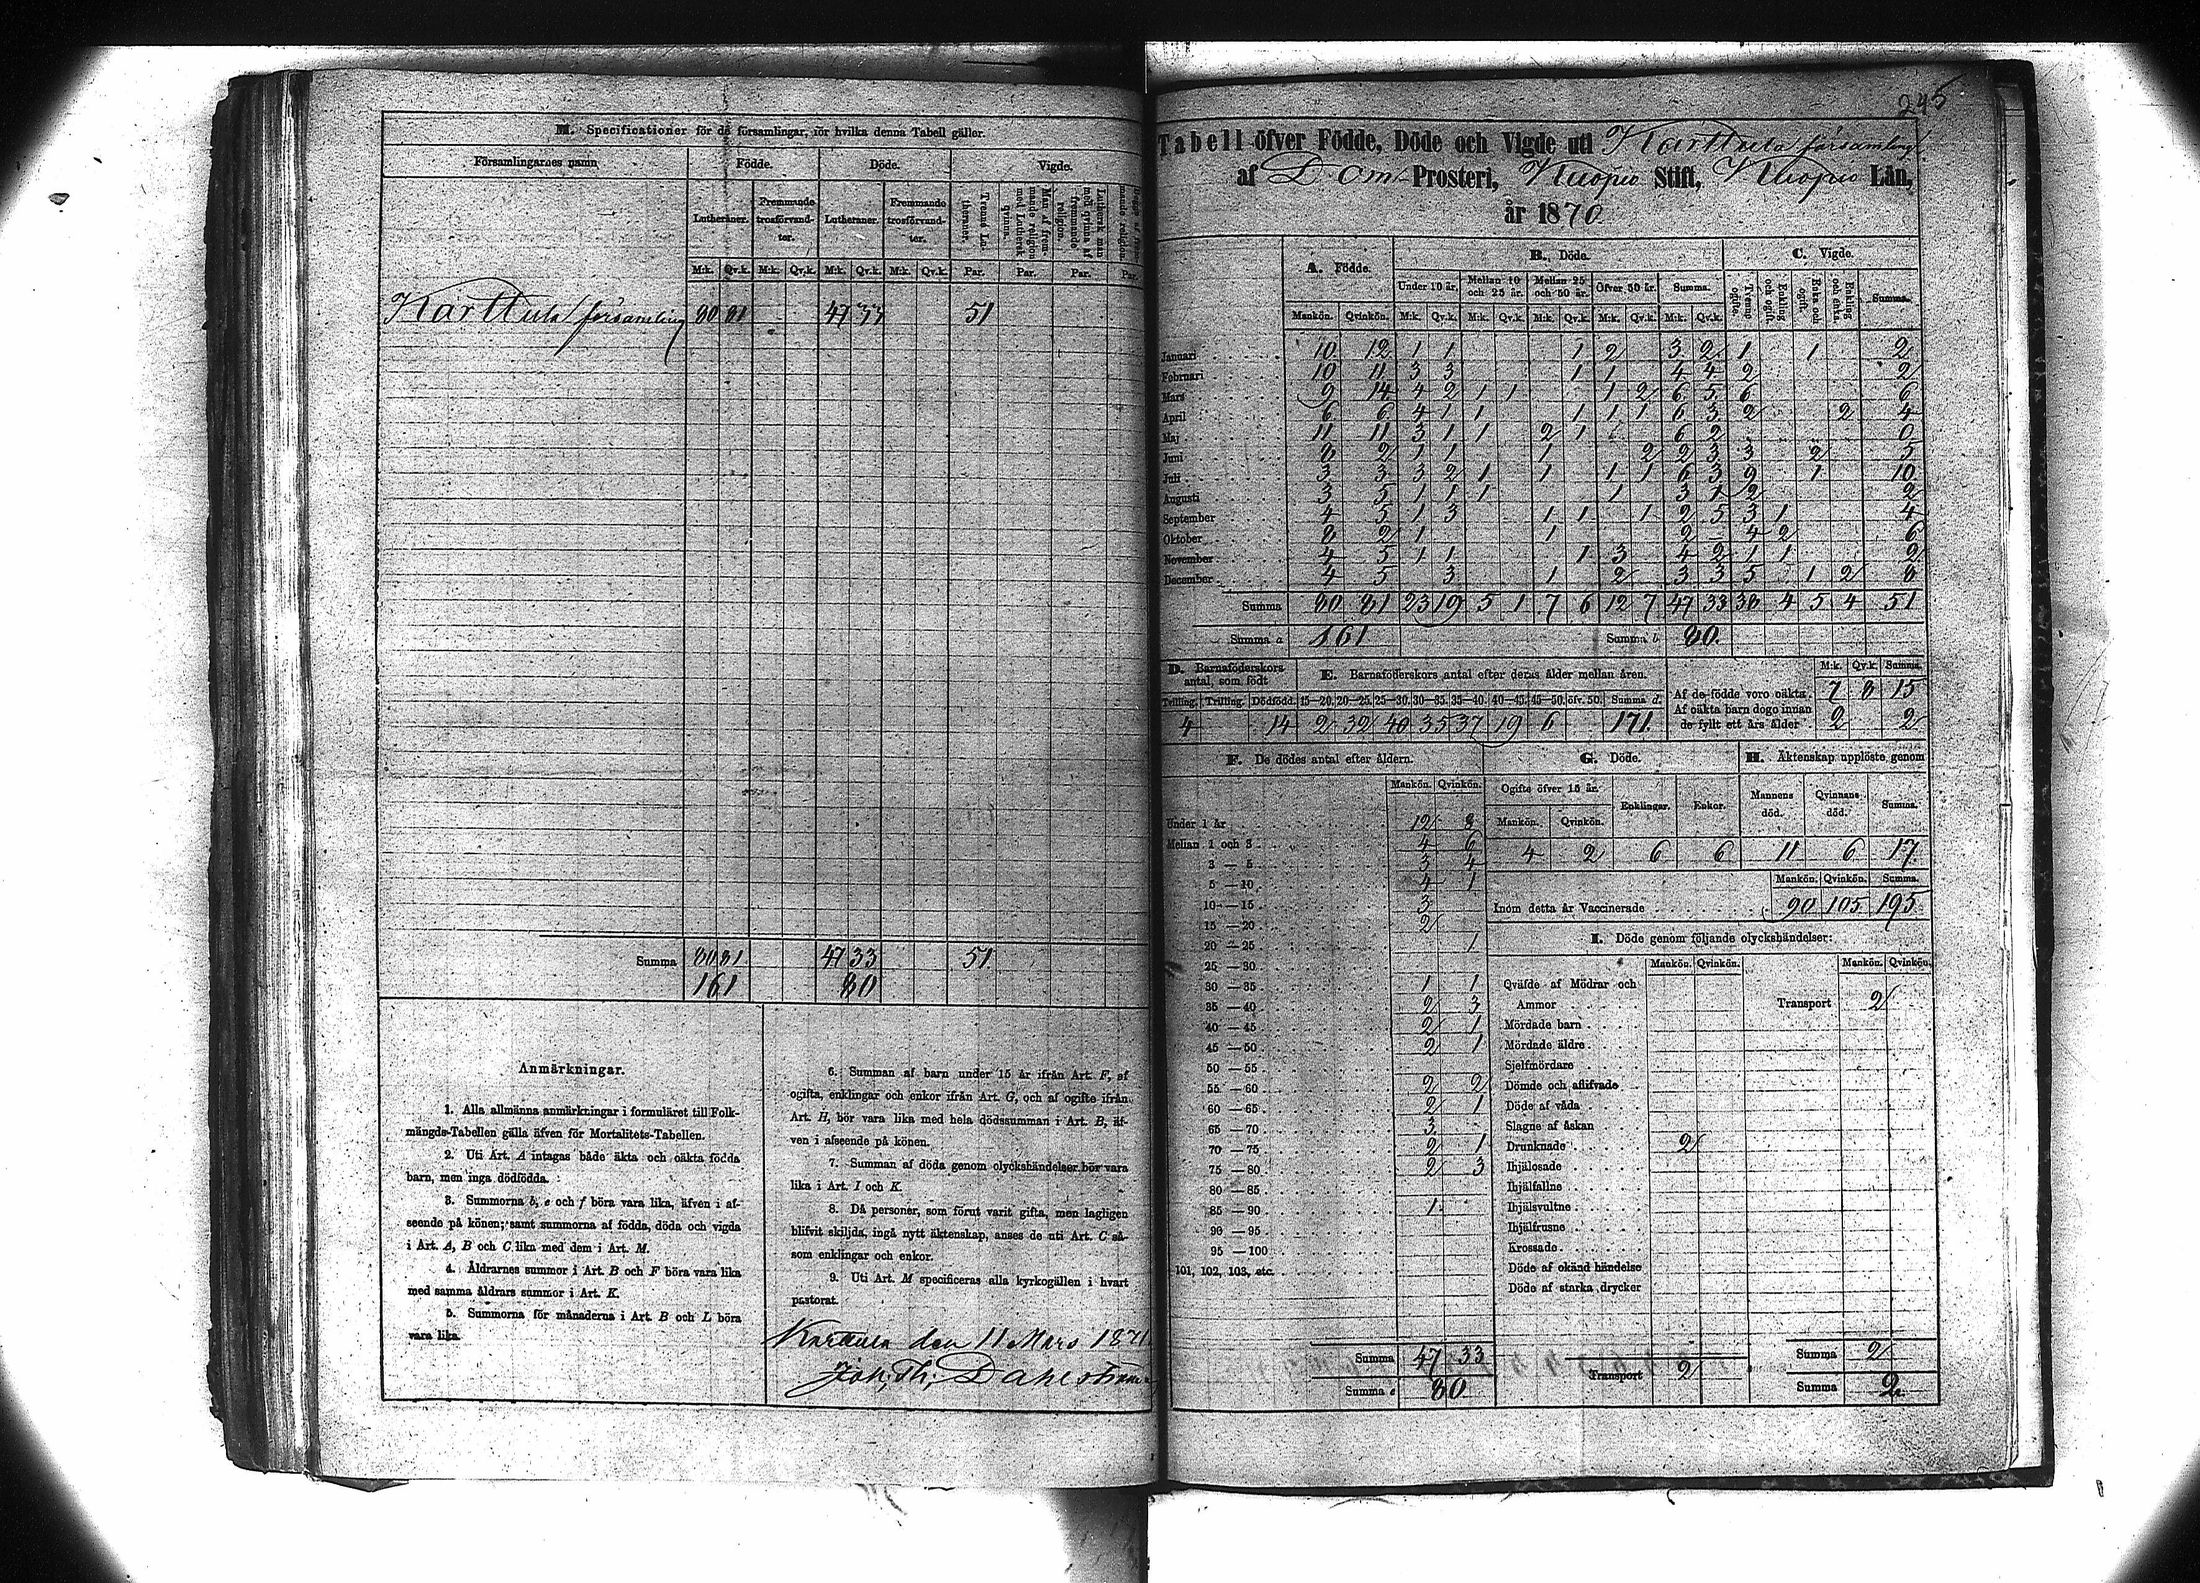 M. Specificationer för de församlingar, för hvilka denna Tabell gäller.
Församlingarnes namn Födde. Döde. Vigde.
Lutheraner. Fremmande trosförvandter. Lutheraner. Fremmande trosförvandter. Trenne Lutheraner. Man af fremmande religion med Luthersk qvinna. Luthersk man med qvinna af fremmande religion.
M:k. Qv.k. M:k. Qv.k. M:k. Qv.k. M:k. Qv.k. Par. Par. Par. Par.
Karttula församling 80 81 47 33 51
Summa 80 81 47 33 51
161 80
Anmärkningar.
1. Alla allmänna anmärkningar i formuläret till Folk-
mängds-Tabellen gälla äfven för Mortalitets-Tabellen.
2. Uti Art. A intagas både äkta och oäkta födda
barn, men inga dödfödda.
3. Summorna b, e och f böra vara lika, äfven i af-
seende på könen; samt summorna af födda, döda och vigda
i Art. A, B och C lika med dem i Art. M.
4. Åldrarnes summor i Art. B och F böra vara lika
med samma åldrars summor i Art. K.
5. Summorna för månaderna i Art. B och L böra
vara lika.
6. Summan af barn under 15 år ifrån Art. F, af
ogifta, enklingar och enkor ifrån Art. G, och af ogifte ifrån
Art. H, bör vara lika med hela dödssumman i Art. B, äf-
ven i afseende på könen.
7. Summan af döda genom olyckshändelser bör vara
lika i Art. I och K.
8. Då personer, som förut varit gifta, men lagligen
blifvit skiljda, ingå nytt äktenskap, anses de uti Art. C så-
som enklingar och enkor.
9. Uti Art. M specificeras alla kyrkogällen i hvart
pastorat.
Karttula den 11 Mars 1871
Joh: Th: Dahlström
245
Tabell öfver Födde, Döde och Vigde uti Karttula församling
af Dom-Prosteri, Kuopio Stift, Kuopio Län,
år 1870
A. Födde. B. Döde. C. Vigde.
Under 10 år. Mellan 10 och 25 år. Mellan 25 och 50 år. Öfver 50 år. Summa. Tvenne ogifte. Enkling och ogift. Enka och ogift. Enkling och enka. Summa.
Mankön. Qvinkön. M:k. Qv.k. M:k. Qv.k. M:k. Qv.k. M:k. Qv.k. M:k. Qv.k.
Januari 10 12 1 1 1 2 3 2 1 1 2
Februari 10 11 3 3 1 1 4 4 2 2
Mars 9 14 4 2 1 1 1 2 6 5 6 6
April 6 6 4 1 1 1 1 1 6 3 2 2 4
Maj 11 11 3 1 1 2 1 6 2 0
Juni 8 2 1 1 1 2 2 3 3 2 5
Juli 3 3 3 2 1 1 1 1 6 3 9 1 10
Augusti 3 5 1 1 1 1 3 1 2 2
September 4 5 1 3 1 1 1 2 5 3 1 4
Oktober 8 2 1 1 2 4 2 6
November 4 5 1 1 1 3 4 2 1 1 2
December 4 5 3 1 2 3 3 5 1 2 8
Summa 80 81 23 19 5 1 7 6 12 7 47 33 38 4 5 4 51
Summa a 161 Summa b 80.
D. Barnaföderskors antal, som födt
Tvilling. Trilling. Dödfödd.
4 14
E. Barnaföderskors antal efter deras ålder mellan åren.
15—20. 20—25. 25—30. 30—35. 35—40. 40—45. 45—50. öfv. 50. Summa d.
2 32 40 35 37 19 6 171.
M:k. Qv.k. Summa.
Af de födde voro oäkta 7 8 15
Af oäkta barn dogo innan de fyllt ett års ålder 2 2
F. De dödes antal efter åldern.
Mankön. Qvinkön.
Under 1 år 12 8
Mellan 1 och 3 4 6
3 — 5 3 4
5 — 10 4 1
10 — 15 3
15 — 20 2
20 — 25 1
25 — 30
30 — 35 1 1
35 — 40 2 3
40 — 45 2 1
45 — 50 2 1
50 — 55
55 — 60 2 2
60 — 65 2 1
65 — 70 3
70 — 75 2 1
75 — 80 2 3
80 — 85
85 — 90 1
90 — 95
95 — 100
101, 102, 103, etc.
Summa 47 33
Summa e 80
G. Döde.
Ogifte öfver 15 år. Enklingar. Enkor.
Mankön. Qvinkön.
4 2 6 6
H. Äktenskap upplöste genom
Mannens död. Qvinnans död. Summa.
11 6 17
Mankön. Qvinkön. Summa.
Inom detta år Vaccinerade 90 105 195
I. Döde genom följande olyckshändelser:
Mankön. Qvinkön. Mankön. Qvinkön.
Qväfde af Mödrar och
Ammor Transport 2
Mördade barn
Mördade äldre
Sjelfmördare
Dömde och aflifvade
Döde af våda
Slagne af åskan
Drunknade 2
Ihjälosade
Ihjälfallne
Ihjälsvultne
Ihjälfrusne
Krossade
Döde af okänd händelse
Döde af starka drycker
Summa 2
Transport 2
Summa 2